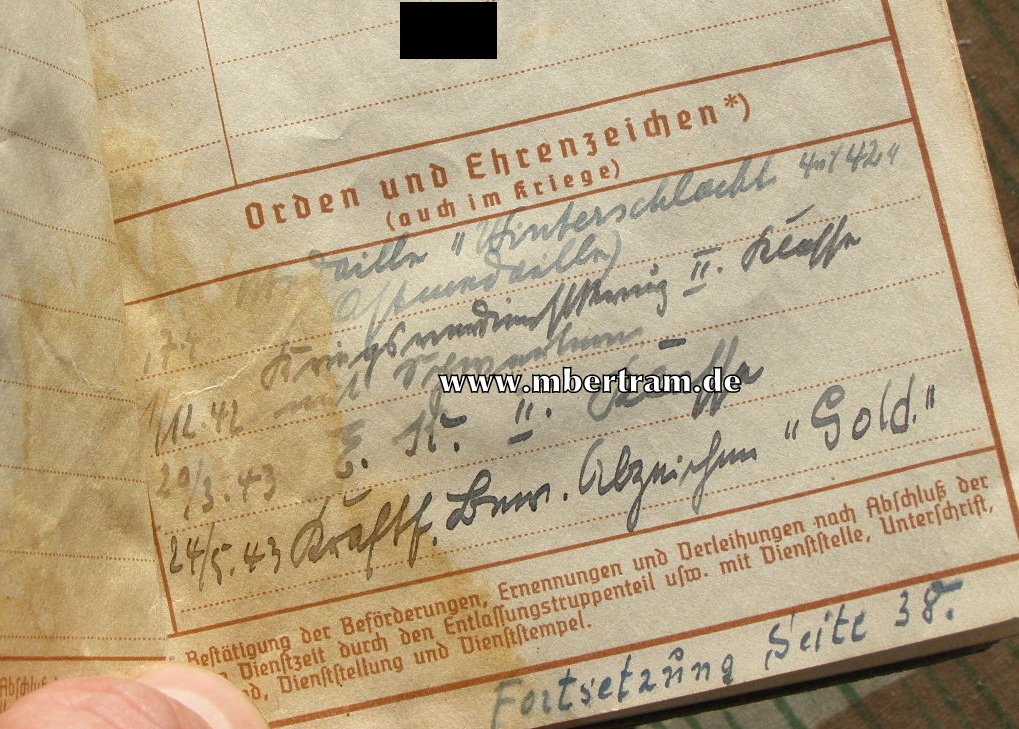 Orden und Ehrenzeichen*)
(auch im Kriege)
Medaille "Winterschlacht 41/42"
(Ostmedaille)
Kriegsverdienstkreuz II. Klasse
1/12.42 mit Schwertern
20/3.43 E. K. II. Klasse
www.mbertram.de
24/5.43 Kraftf. Bew. Abzeichen "Gold."
Bestätigung der Beförderungen, Ernennungen und Verleihungen nach Abschluß der
Dienstzeit durch den Entlassungstruppenteil usw. mit Dienststelle, Unterschrift,
Dienststellung und Dienststempel.
Fortsetzung Seite 38.
Abschluß